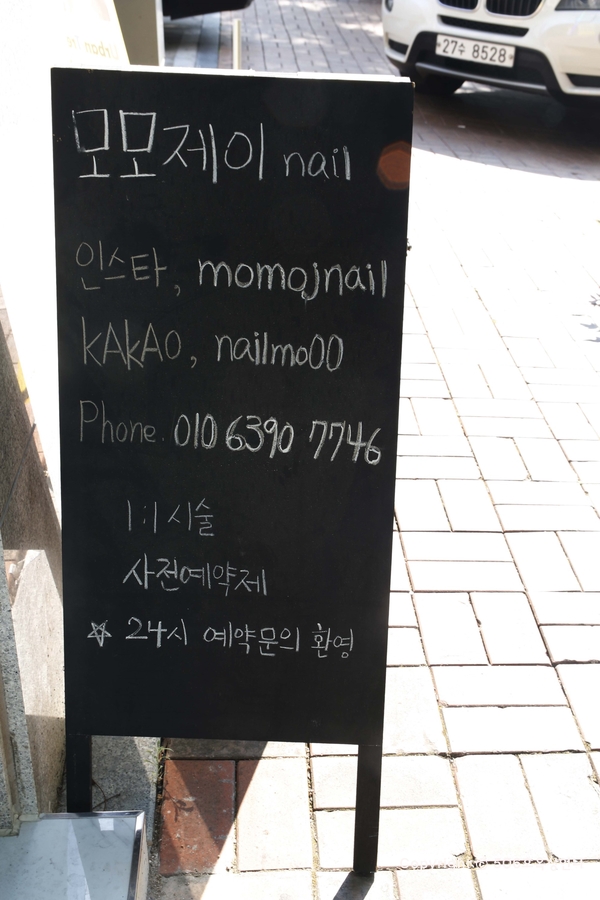 27수 8528
모모제이 nail
인스타, momojnail
KAKAO, nailmo00
Phone. 010 6390 7746
1:1 시술
사전예약제
☆ 24시 예약문의 환영